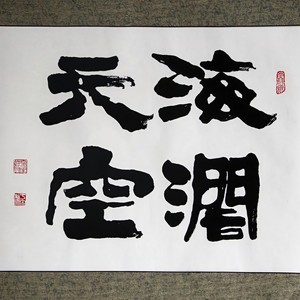 海濶
天空